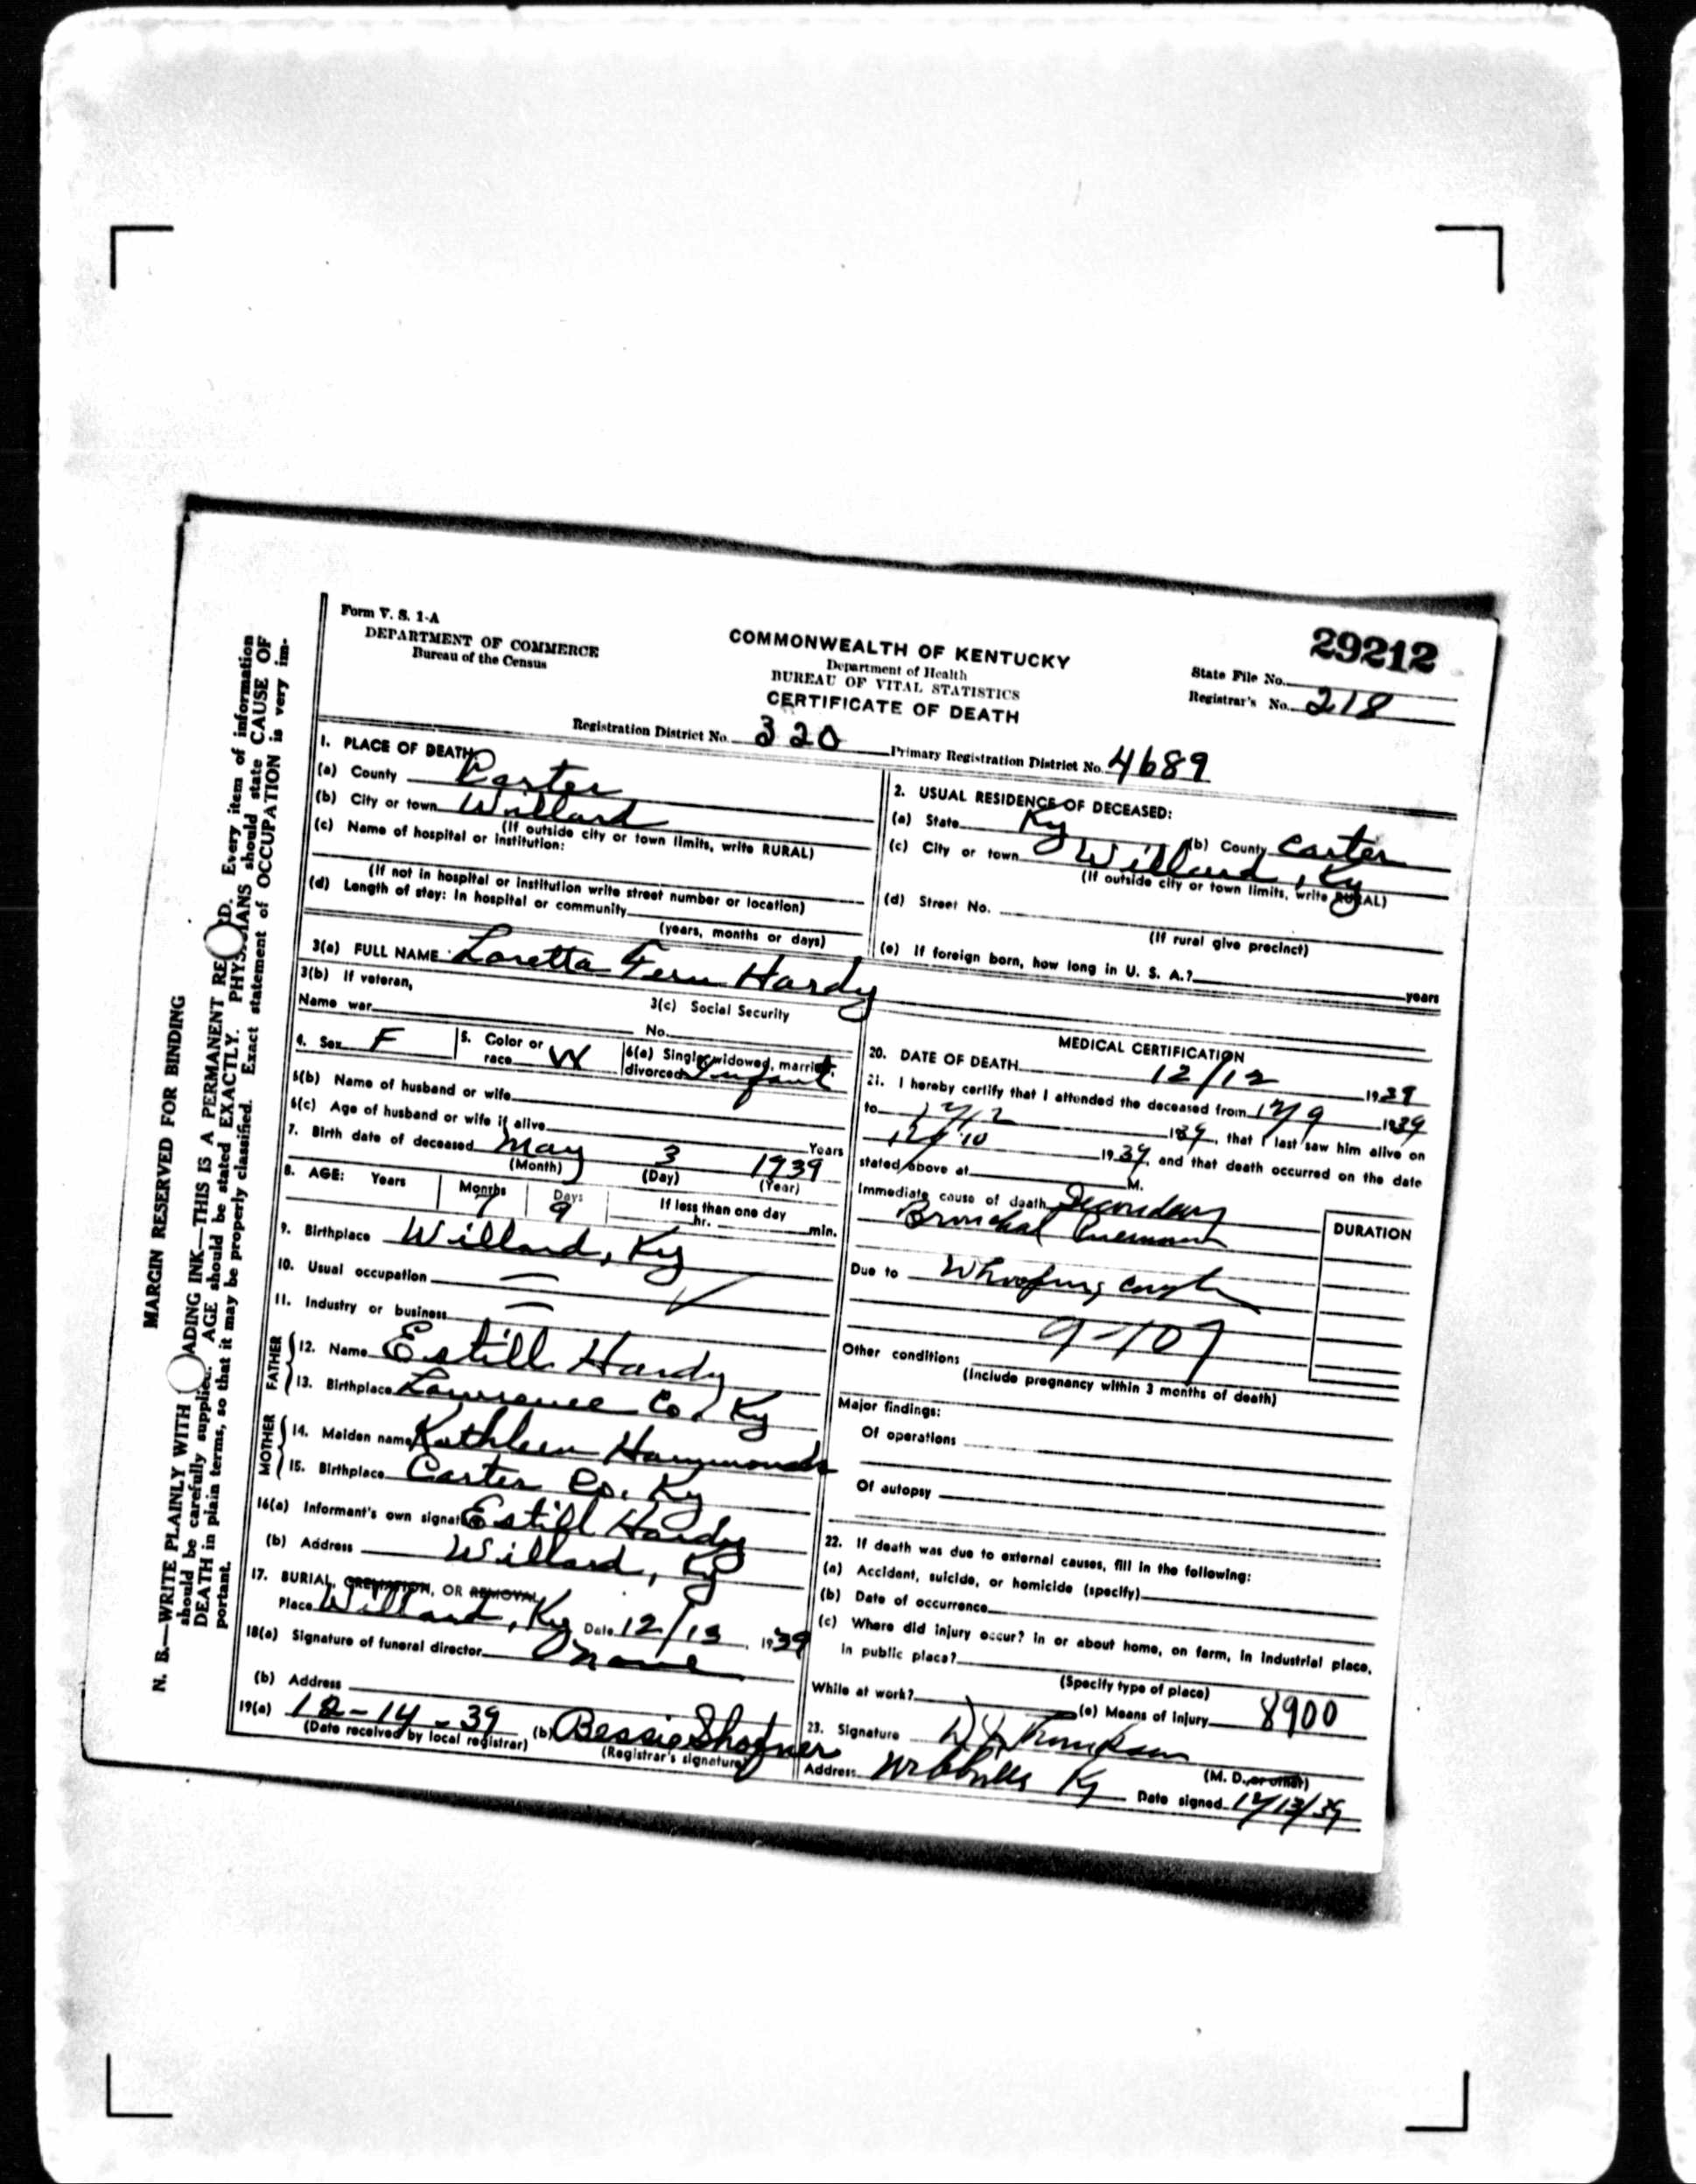 MARGIN RESERVED FOR BINDING
N. B.—WRITE PLAINLY WITH ADING INK—THIS IS A PERMANENT RE RD. Every item of information
should be carefully supplied. AGE should be stated EXACTLY. PHYSICIANS should state CAUSE OF
DEATH in plain terms, so that it may be properly classified. Exact statement of OCCUPATION is very im-
portant.
Form V. S. 1-A
DEPARTMENT OF COMMERCE
Bureau of the Census
COMMONWEALTH OF KENTUCKY
Department of Health
BUREAU OF VITAL STATISTICS
CERTIFICATE OF DEATH
29212
State File No.
Registrar's No. 218
Registration District No. 320 Primary Registration District No. 4689
1. PLACE OF DEATH
(a) County Carter
(b) City or town Willard
(If outside city or town limits, write RURAL)
(c) Name of hospital or institution:
(If not in hospital or institution write street number or location)
(d) Length of stay: In hospital or community
(years, months or days)
2. USUAL RESIDENCE OF DECEASED:
(a) State Ky (b) County Carter
(c) City or town Willard, Ky
(If outside city or town limits, write RURAL)
(d) Street No.
(If rural give precinct)
(e) If foreign born, how long in U. S. A.? years
3(a) FULL NAME Loretta Fern Hardy
3(b) If veteran,
Name war
3(c) Social Security
No.
4. Sex F 5. Color or race W 6(a) Single, widowed, married, divorced Infant
6(b) Name of husband or wife
6(c) Age of husband or wife if alive Years
7. Birth date of deceased May 3 1939
(Month) (Day) (Year)
8. AGE: Years Months 7 Days 9 If less than one day
hr. min.
9. Birthplace Willard, Ky
10. Usual occupation —
11. Industry or business —
FATHER
12. Name Estill Hardy
13. Birthplace Lawrence Co. Ky
MOTHER
14. Maiden name Kathleen Hammonds
15. Birthplace Carter Co. Ky
16(a) Informant's own signature Estill Hardy
(b) Address Willard, Ky
17. BURIAL, CREMATION, OR REMOVAL
Place Willard, Ky Date 12/13 1939
18(a) Signature of funeral director none
(b) Address
19(a) 12-14-39 (b) Bessie Shofner
(Date received by local registrar) (Registrar's signature)
MEDICAL CERTIFICATION
20. DATE OF DEATH 12/12 1939
21. I hereby certify that I attended the deceased from 12/9 1939
to 12/12 1939, that I last saw him alive on
12/10 1939, and that death occurred on the date
stated above at M.
Immediate cause of death Secondary
Bronchial Pneumonia
DURATION
Due to Whooping cough
9-107
Other conditions
(Include pregnancy within 3 months of death)
Major findings:
Of operations
Of autopsy
22. If death was due to external causes, fill in the following:
(a) Accident, suicide, or homicide (specify)
(b) Date of occurrence
(c) Where did injury occur? In or about home, on farm, in industrial place,
in public place?
(Specify type of place)
While at work? (e) Means of injury 8900
23. Signature
(M. D., or other)
Address Webbville Ky Date signed 12/13/39